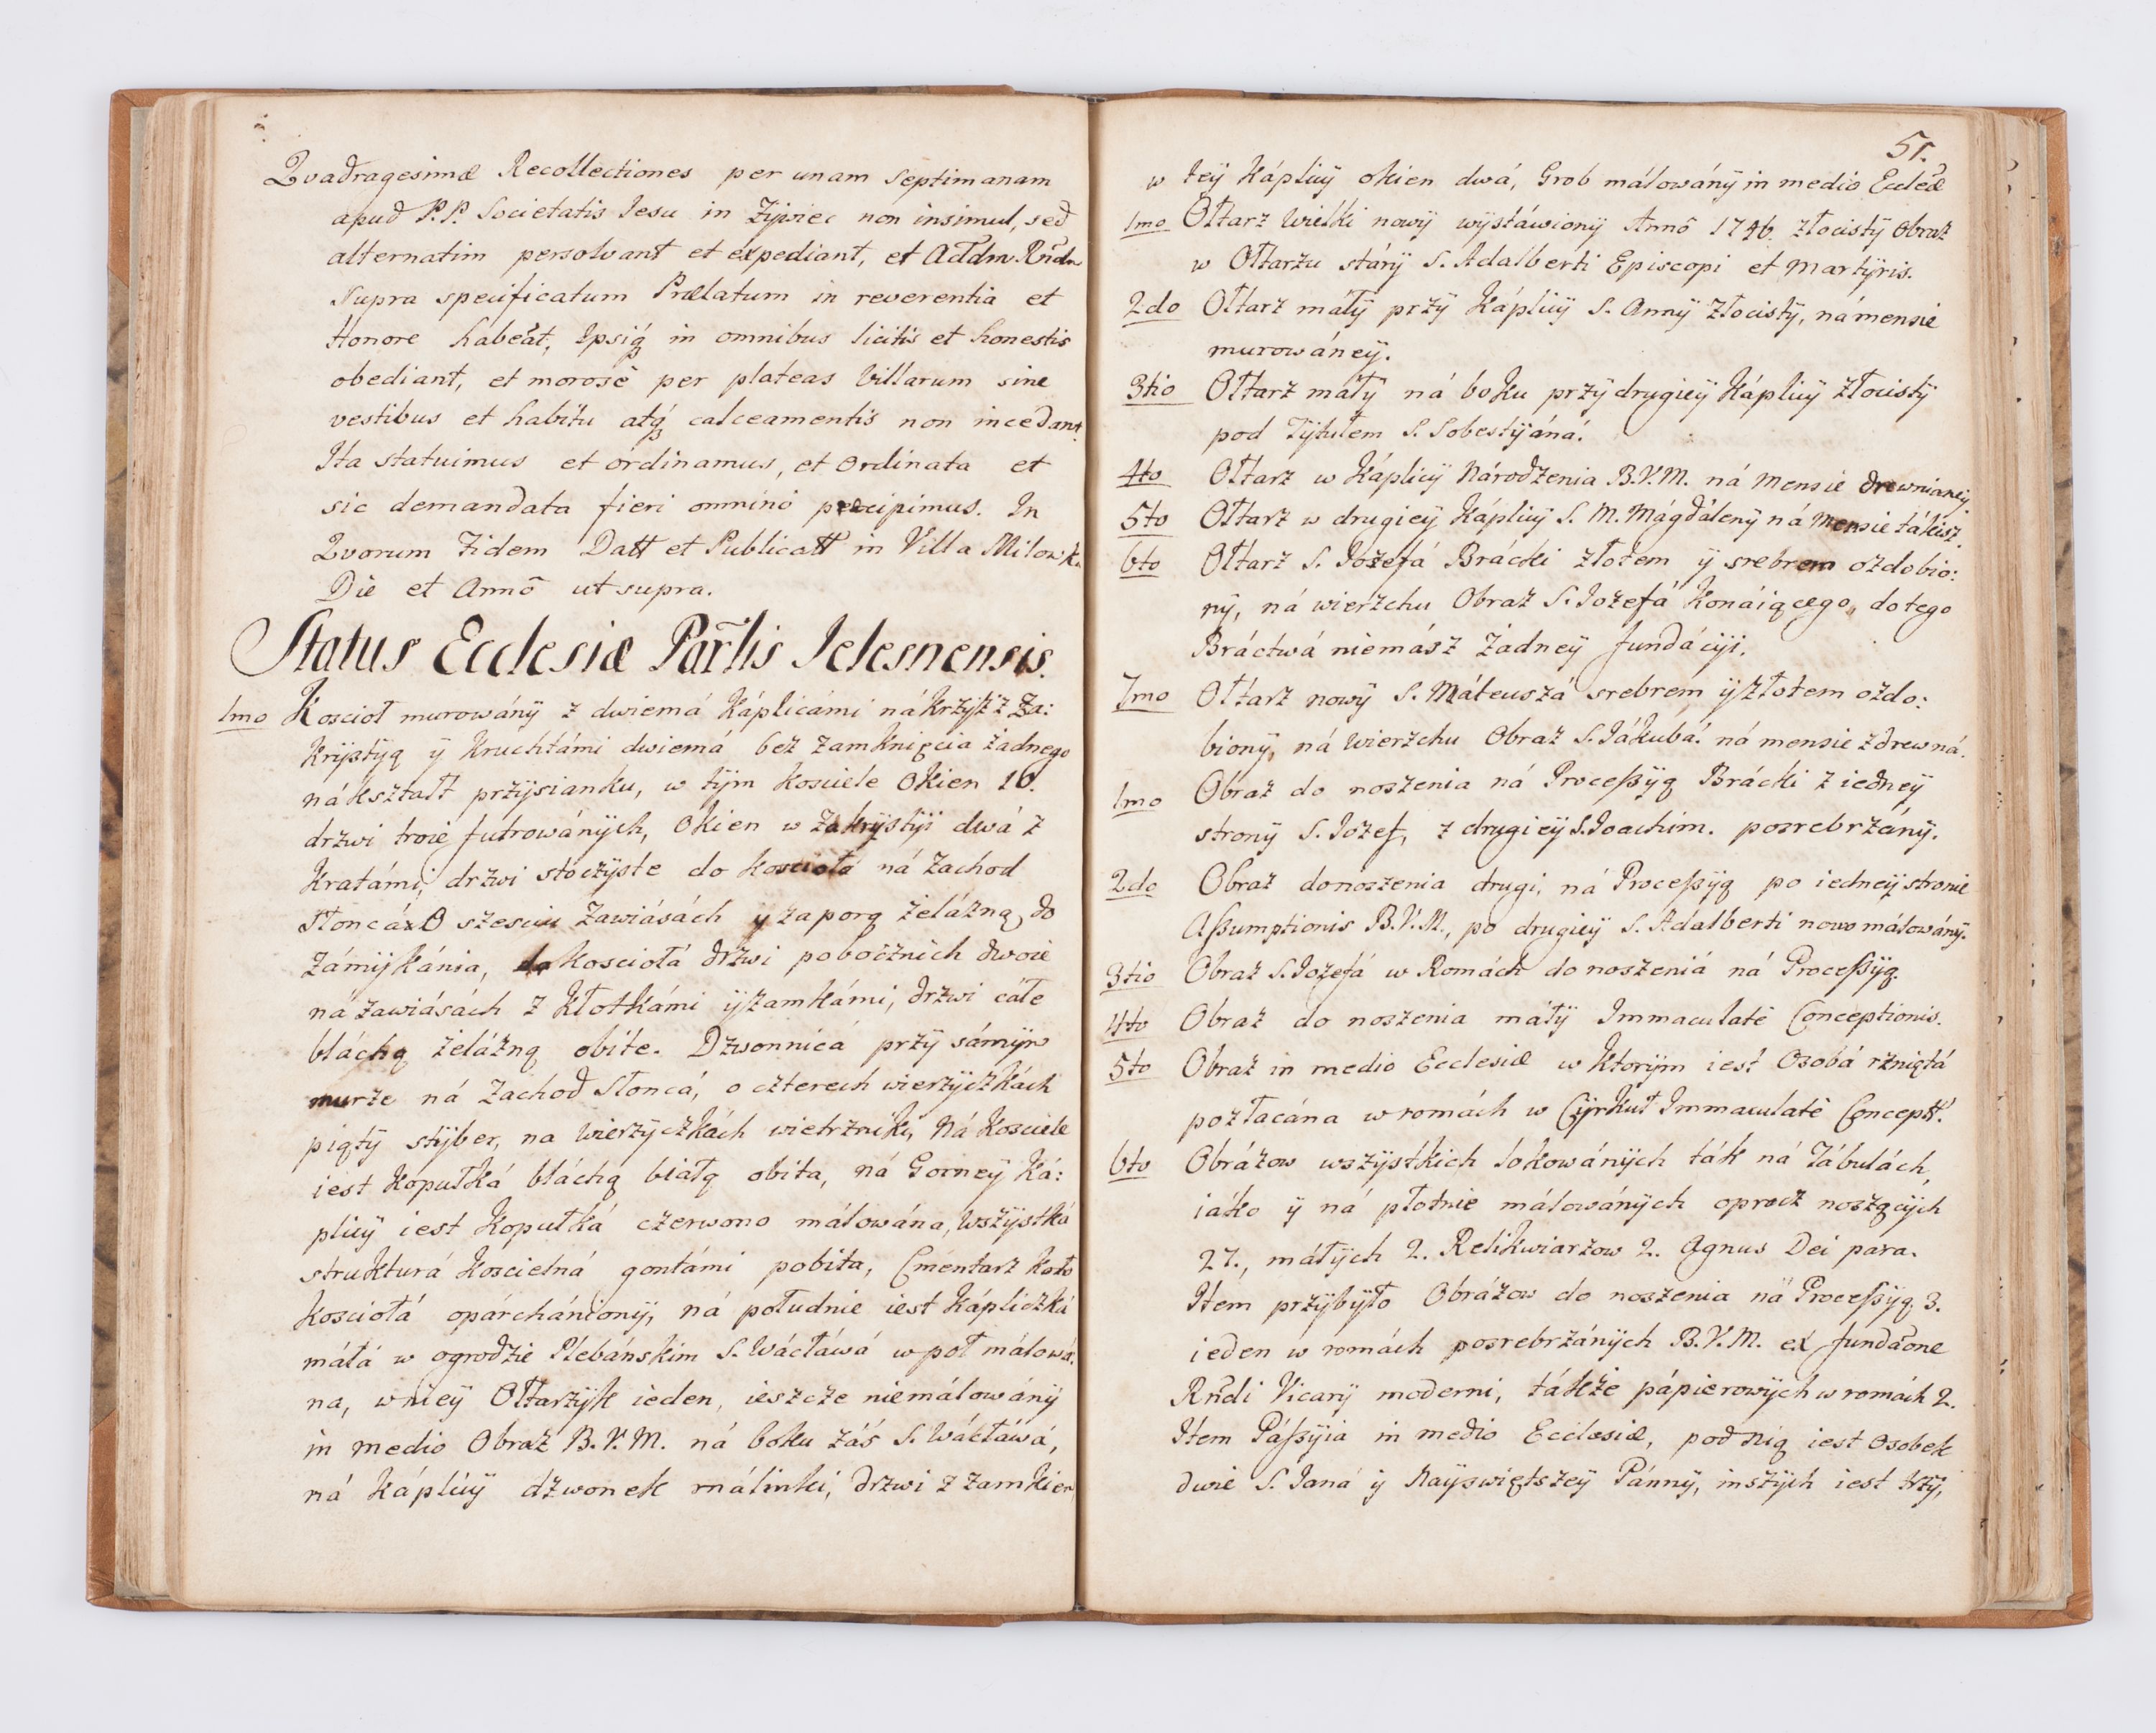 Qvadragesimæ Recollectiones per unam septimanam
apud P.P. Societatis Iesu in Zÿwiec non insimul, sed
alternatim persolvant et expediant, et
supra specificatum Prælatum in reverentia et
Honore habeãt, Ipsiq́ in omnibus licitis et honestis
obediant, et morosè per plateas Villarum sine
vestibus et habitu atq́ calceamentis non incedant.
Ita statuimus et ordinamus, et Ordinata et
sic demandata fieri omnino præcipimus. In
Qvorum Fidem Datt et Publicatt in Villa Milowk.
Die et Annô ut supra.
Status Ecclesiæ Par̃lis Ielesnensis.
1mo Kosciół murowánÿ z dwiemá Káplicámi ná krzÿż z Za:
krÿstÿą ÿ Kruchtámi dwiemá bez zamknięcia żadnego
ná kształt przÿsianku, w tÿm kosciele Okien 10.
drzwi troie futrowánÿch, Okien w zakrÿstÿi dwá z
kratámi, drzwi stoczÿste do koscioła ná zachod
Słoncá O szesciu zawiásách ÿ zaporą żelázną do
zámÿkánia, do Koscioła drzwi pobocznich dwoie
ná zawiásách z kłotkámi ÿ zamkámi, drzwi cáłe
bláchą żelázną obite. Dzwonnica przÿ sámÿm
murze ná Zachod Słoncá, o czterech wierzÿczkách
piątÿ stÿber, na wierzÿczkách wietrzniki, Ná Kosciele
iest Kopułká bláchą białą obita, ná Gorneÿ Ká:
plicÿ iest Kopułká czerwono málowána, wszÿstká
strukturá Koscielná gontámi pobita, Cmentarz koło
kosciołá opárchánionÿ, ná południe iest Kápliczká
máłá w ogrodzie Plebánskim S. Wácłáwá w poł málowá:
na, w nieÿ Ołtarzÿk ieden, ieszcze niemálowánÿ
in medio Obraz B.V.M. ná boku záś S. Wácłáwá,
ná káplicÿ dzwonek málinki, drzwi z zamkiem
51.
w teÿ káplicÿ okien dwá, Grob málowánÿ in medio Eccleæ
1mo Ołtarz Wielki nowÿ wÿstáwionÿ Annô 1746. złocistÿ Obraz
w Ołtarzu stárÿ S. Adalberti Episcopi et Martÿris.
2do Ołtarz małÿ przÿ Káplicÿ S. Annÿ złocistÿ, ná mensie
murowáneÿ.
3tio Ołtarz małÿ ná boku przÿ drugieÿ Káplicÿ złocistÿ
pod Tÿtułem S. Sobestÿáná.
4to Ołtarz w Káplicÿ Národzenia B.V.M. ná Mensie drewnianeÿ.
5to Ołtarz w drugieÿ Káplicÿ S. M. Mágdálenÿ ná Mensie tákisz.
6to Ołtarz S. Iozefá Brácki złotem ÿ srebrem ozdobio:
nÿ, ná wierzchu Obraz S. Iozefá Konáiącego, do tego
Bráctwá niemász żadneÿ fundácÿi.
7mo Ołtarz nowÿ S. Máteuszá srebrem ÿ złotem ozdo:
bionÿ, ná wierzchu Obraz S. Iákubá. ná mensie z drewná.
1mo Obraz do noszenia ná Proceßÿą Brácki z iedneÿ
stronÿ S. Iozef, z drugieÿ S. Ioachim. posrebrzánÿ.
2do Obraz do noszenia drugi, ná Proceßÿą po iedneÿ stronie
Aßumptionis B.V.M., po drugieÿ S. Adalberti nowo málowánÿ.
3tio Obraz S. Iozefá w Romách do noszeniá ná Proceßÿą.
4to Obraz do noszenia máłÿ Immaculatè Conceptionis.
5to Obraz in medio Ecclesiæ w ktorÿm iest Osobá rzniętá
pozłacána w romách w Cÿrkuł Immaculatè Conceptt.
6to Obrázow wszÿstkich lokowánÿch ták ná Tábulách,
iáko ÿ ná płotnie málowánÿch oprocz noszącÿch
27., máłÿch 2. Relikwiarzow 2. Agnus Dei para.
Item przÿbÿło Obrázow do noszenia ná Proceßÿą. 3.
ieden w romách posrebrzánÿch B.V.M. ex fundãone
Rñdi Vicarÿ moderni, tákże pápierowÿch w romách 2.
Item Páßÿia in medio Ecclesiæ, pod nią iest Osobek
dwie S. Janá ÿ Naÿswiętszeÿ Pánnÿ, inszÿch iest trzÿ,